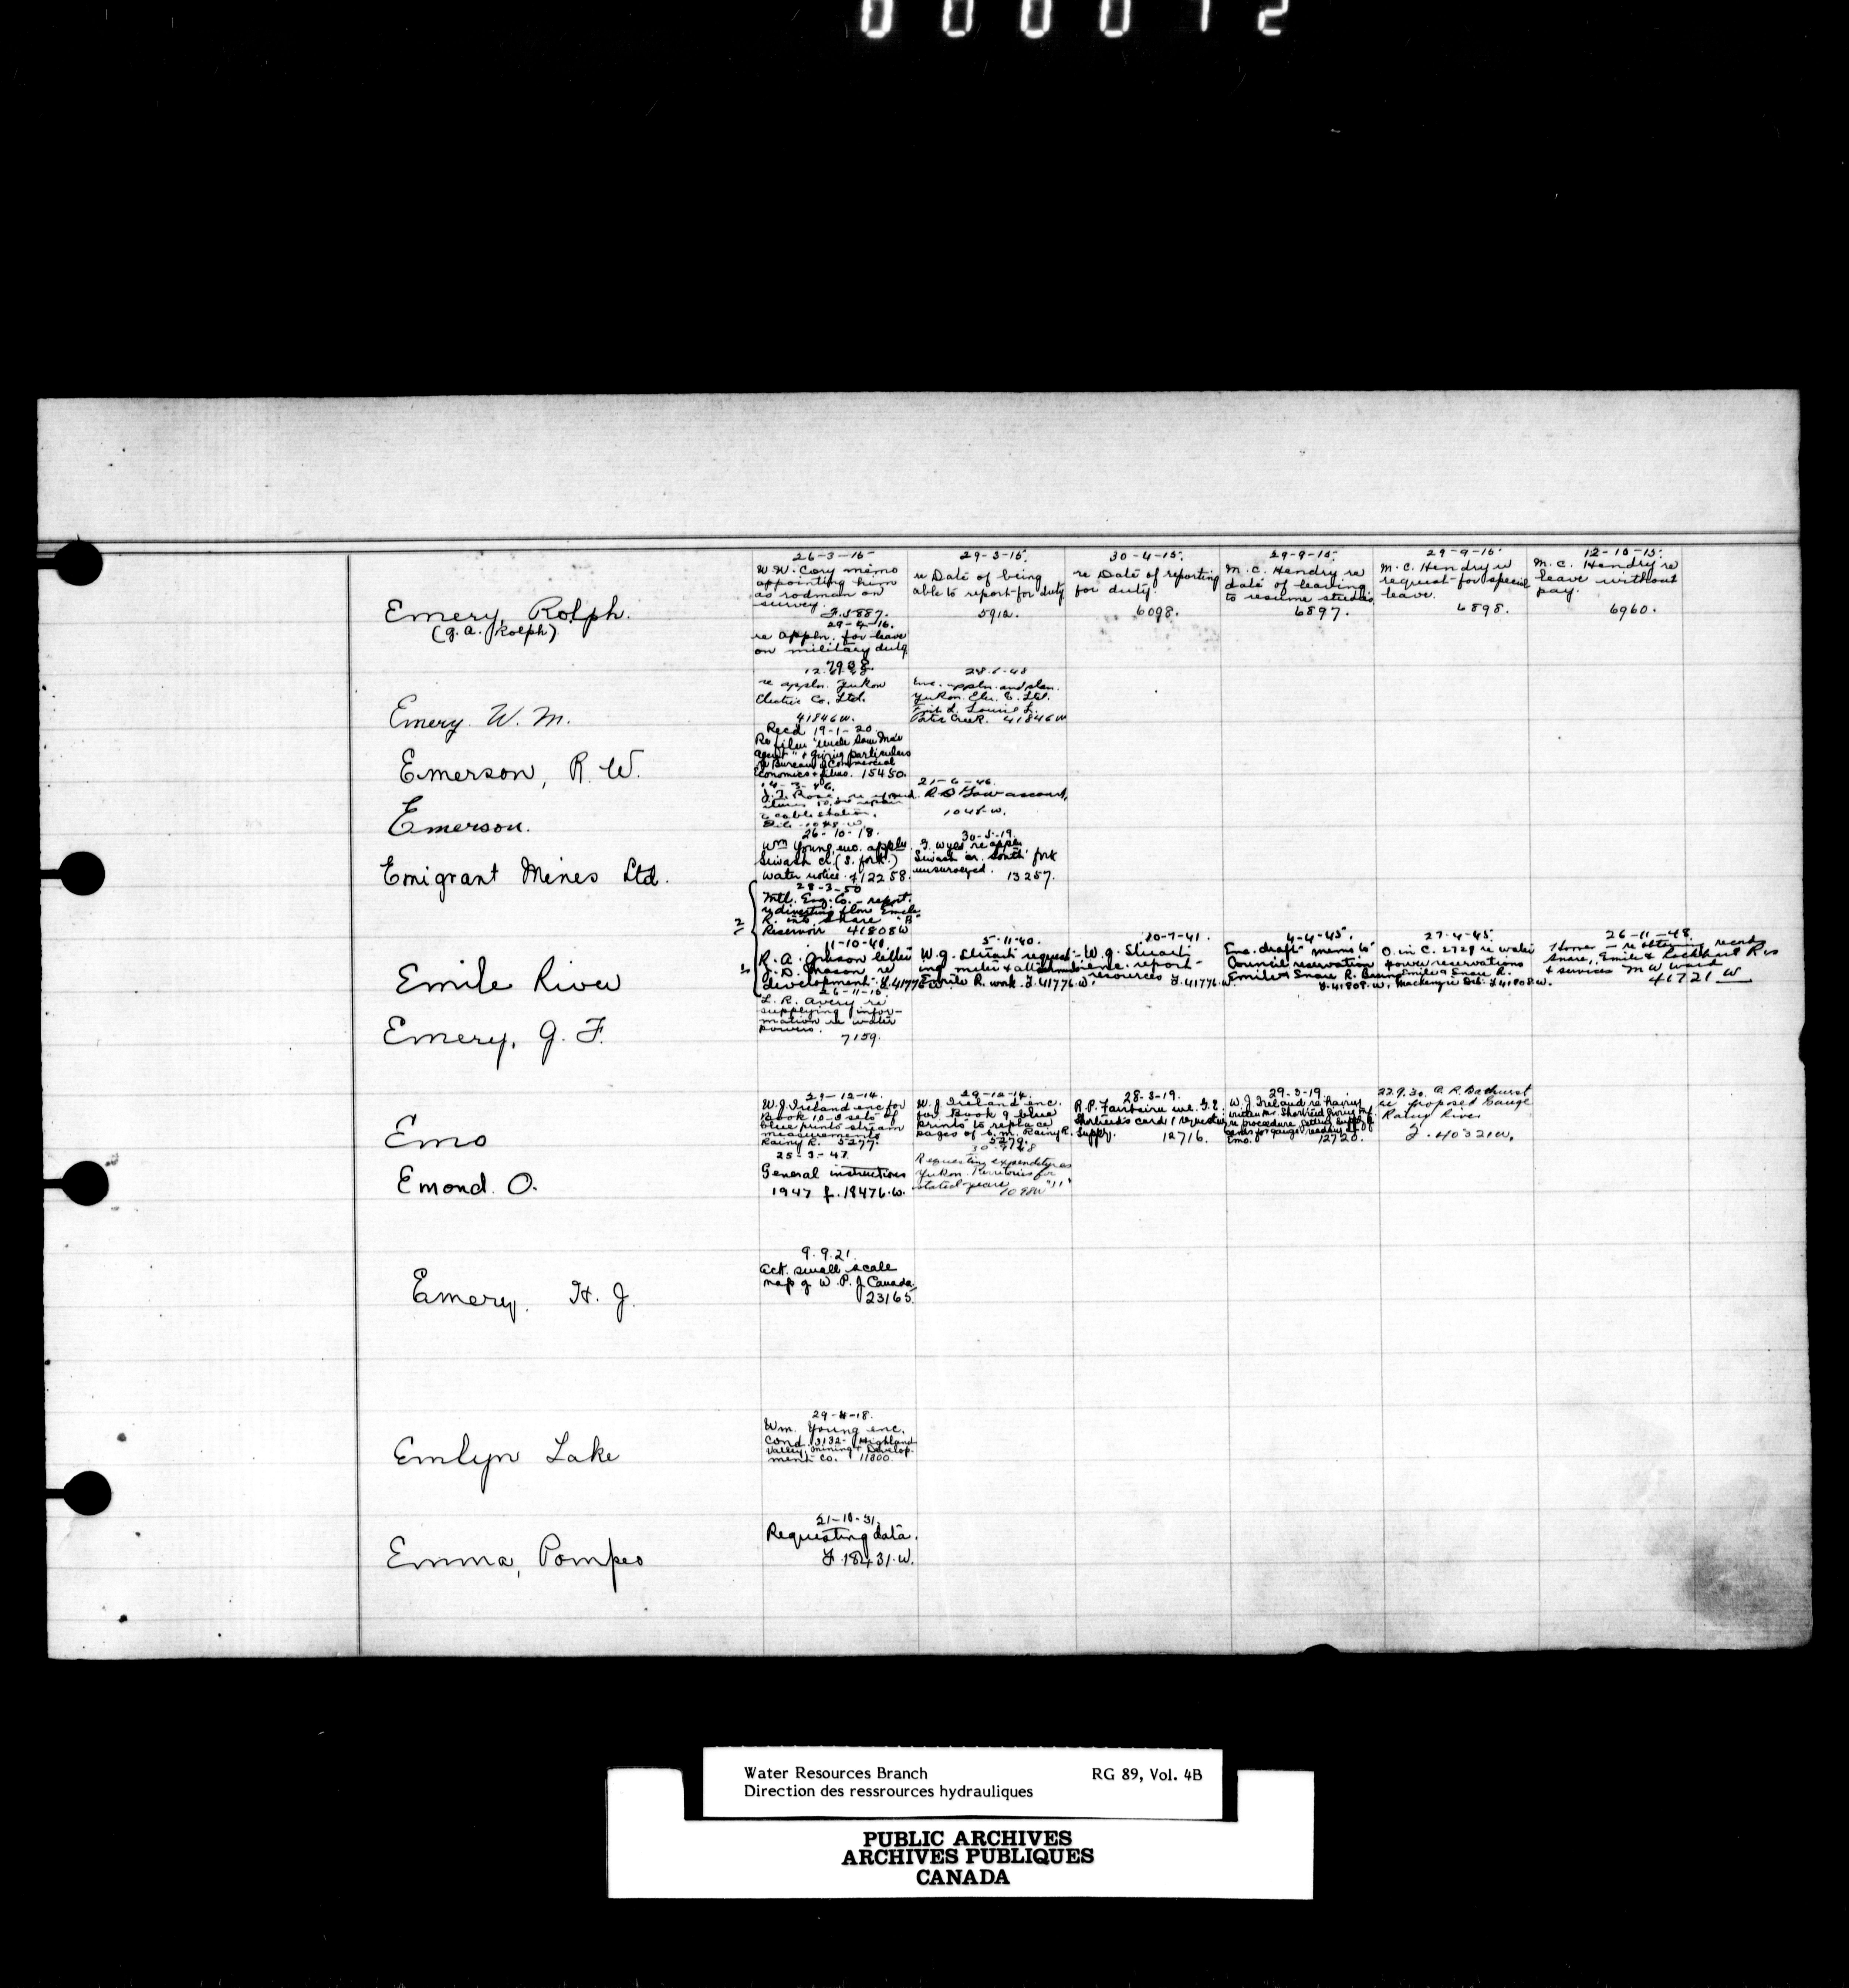 000072
Emery, Rolph.
(G. A. Rolph)
26-3-15
W. W. Cory memo
appointing him
as rodman on
survey.
F. 5887.
29-4-16.
re appln. for leave
on military duty
7938
29-3-15.
re Date of being
able to report for duty
5912.
30-4-15.
re Date of reporting
for duty.
6098.
29-9-15.
M. C. Hendry re
date of leaving
to resume studies
6897.
29-9-15.
M. C. Hendry re
request for special
leave.
6898.
12-10-15.
M. C. Hendry re
leave without
pay.
6960.
Emery W. M.
re appln. Yukon
Electric Co. Ltd.
41846 W.
Enc. appln. and plan.
Yukon Elec. Co. Ltd.
Louise L.
Porter Creek. 41846 W
Emerson, R. W.
Rec'd 19-1-20
agent" & giving particulars
of Bureau of Commercial
Economics & films. 15450.
Emerson.
J. T. Rose
cable station.
File 1048 W
21-6-46.
account,
1048-W.
Emigrant Mines Ltd.
26-10-18.
Wm Young enc. appln.
Siwash Cr. (S. fork.)
water notice. 12258.
30-5-19.
re appln
Siwash Cr. South fork
unsurveyed. 13257.
2
28-3-50
Mtl. Eng. Co. - report
re diverting flow Emile
R. into Snare "B"
Reservoir 41808 W
Emile River
11-10-40
R. A. Gibson letter
development. F. 41776 W
5-11-40.
W. G. Stuart request-
Emile R. work. F. 41776 W.
10-7-41.
W. G. Stuart
report-
resources F. 41776 W.
4-4-45.
Enc. draft memo to
Council reservation
Emile & Snare R. Basins
F. 41808 W.
27-4-45.
O. in C. 2729 re water
power reservations
Emile & Snare R.
Mackenzie Dist. F 41808 W.
26-11-48
re obtaining records
Snare, Emile & Lockhart Rvs
& services M W Ward
41721 W
Emery, G. F.
26-11-15
L. R. Avery re
supplying infor-
mation re water
powers.
7159.
Emo
29-12-14.
W. J. Ireland enc for
Book 10-3 sets of
blue prints stream
measurements
Rainy R. 5277.
29-12-14.
W. J. Ireland enc.
for Book 9 blue
prints to replace
pages of C. M. Rainy R.
5279.
28-3-19.
R. P. Fairbairn enc. G. E.
Shortreid's card & requesting
supply. 12716.
29-3-19.
W. J. Ireland re having
written Mr. Shortreid giving inf.
re procedure getting supply of
cards for gauge readings
Emo. 12720.
22.9.30. A. R. Bathurst
re proposed Gauge
Rainy River
F. 40321 W.
Emond. O.
25-3-47
General instructions
1947 f. 18476-W.
Requesting expenditures
Yukon Territories for
stated years
1098W "31"
Emery. H. J.
9.9.21
Ack. small scale
map of W. P. of Canada
23165.
Emlyn Lake
29-4-18.
Wm. Young enc.
Cond. 3132- Highland
Valley Mining & Develop-
ment Co. 11800
Emma, Pompeo
21-10-31
Requesting data.
F. 18431-W.
Water Resources Branch RG 89, Vol. 4B
Direction des ressrources hydrauliques
PUBLIC ARCHIVES
ARCHIVES PUBLIQUES
CANADA